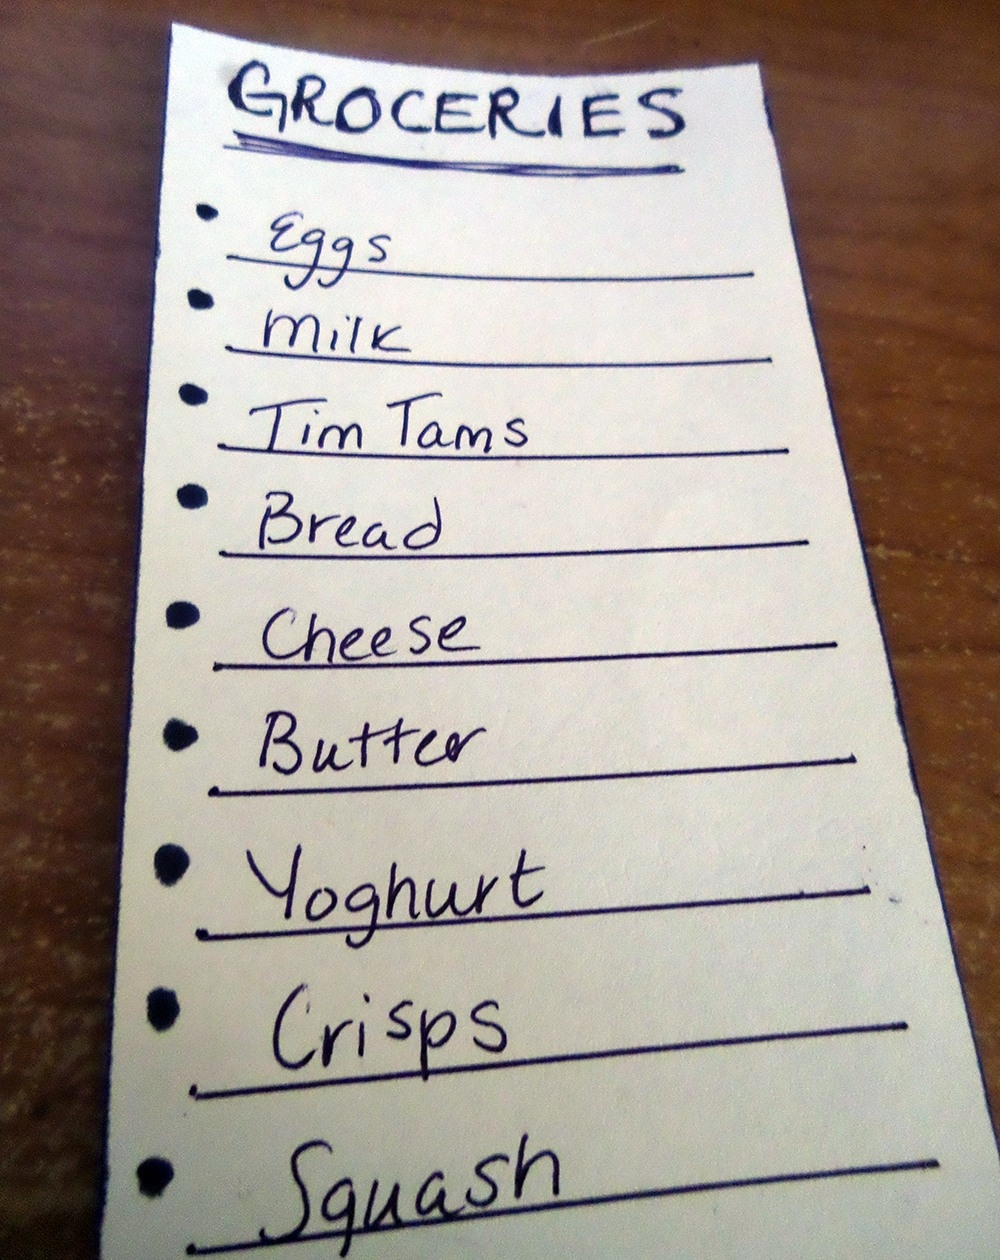 GROCERIES
• Eggs
• Milk
• Tim Tams
• Bread
• Cheese
• Butter
• Yoghurt
• Crisps
• Squash